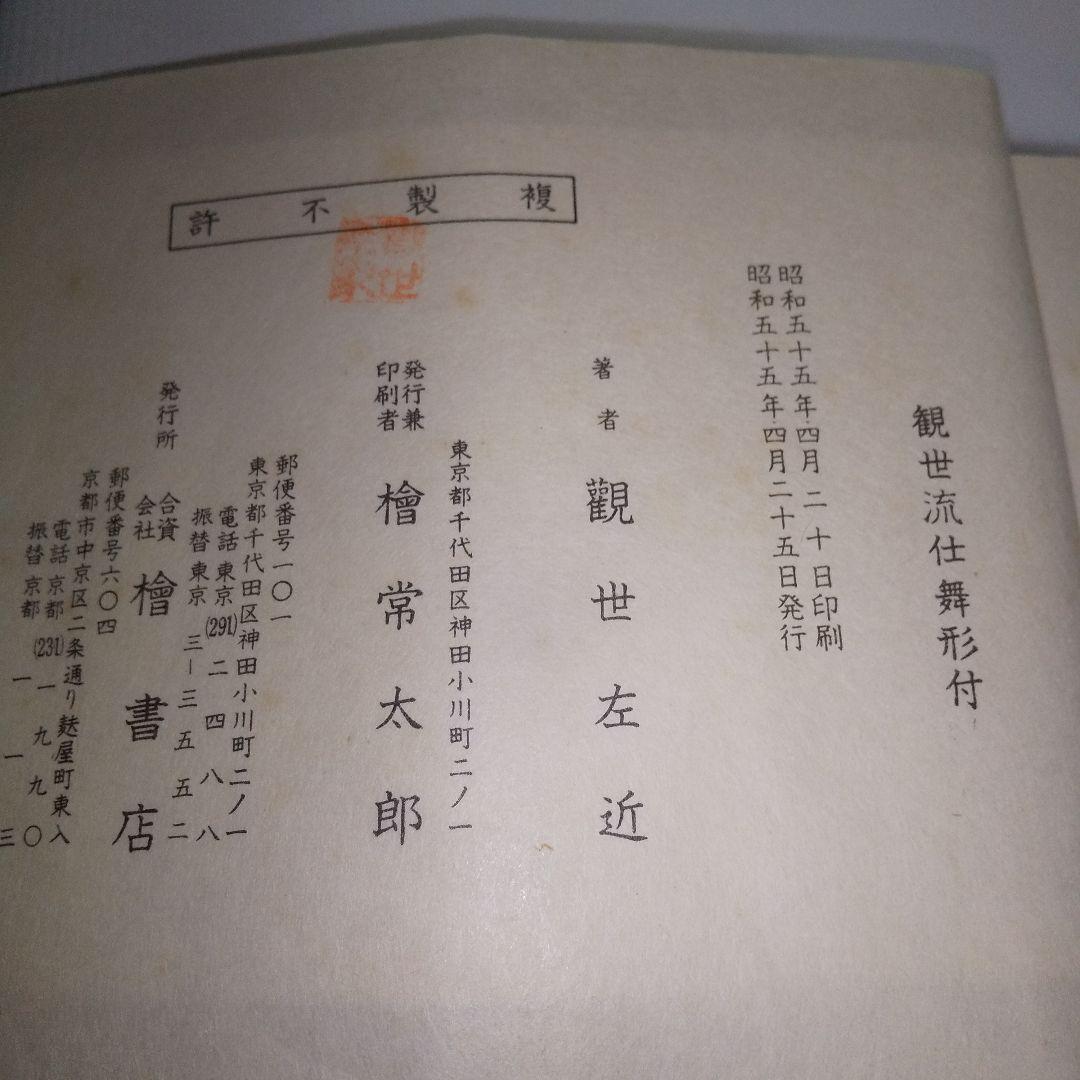 複製不許
観世流仕舞形付
昭和五十五年四月二十日印刷
昭和五十五年四月二十五日発行
著者 觀世左近
東京都千代田区神田小川町二ノ一
発行兼
印刷者 檜常太郎
郵便番号一〇一
東京都千代田区神田小川町二ノ一
電話東京(291)二四八八
振替東京三ー三五五二
発行所 合資
会社 檜書店
郵便番号六〇四
京都市中京区二条通り麩屋町東入
電話京都(231)一九九〇
振替京都一一三